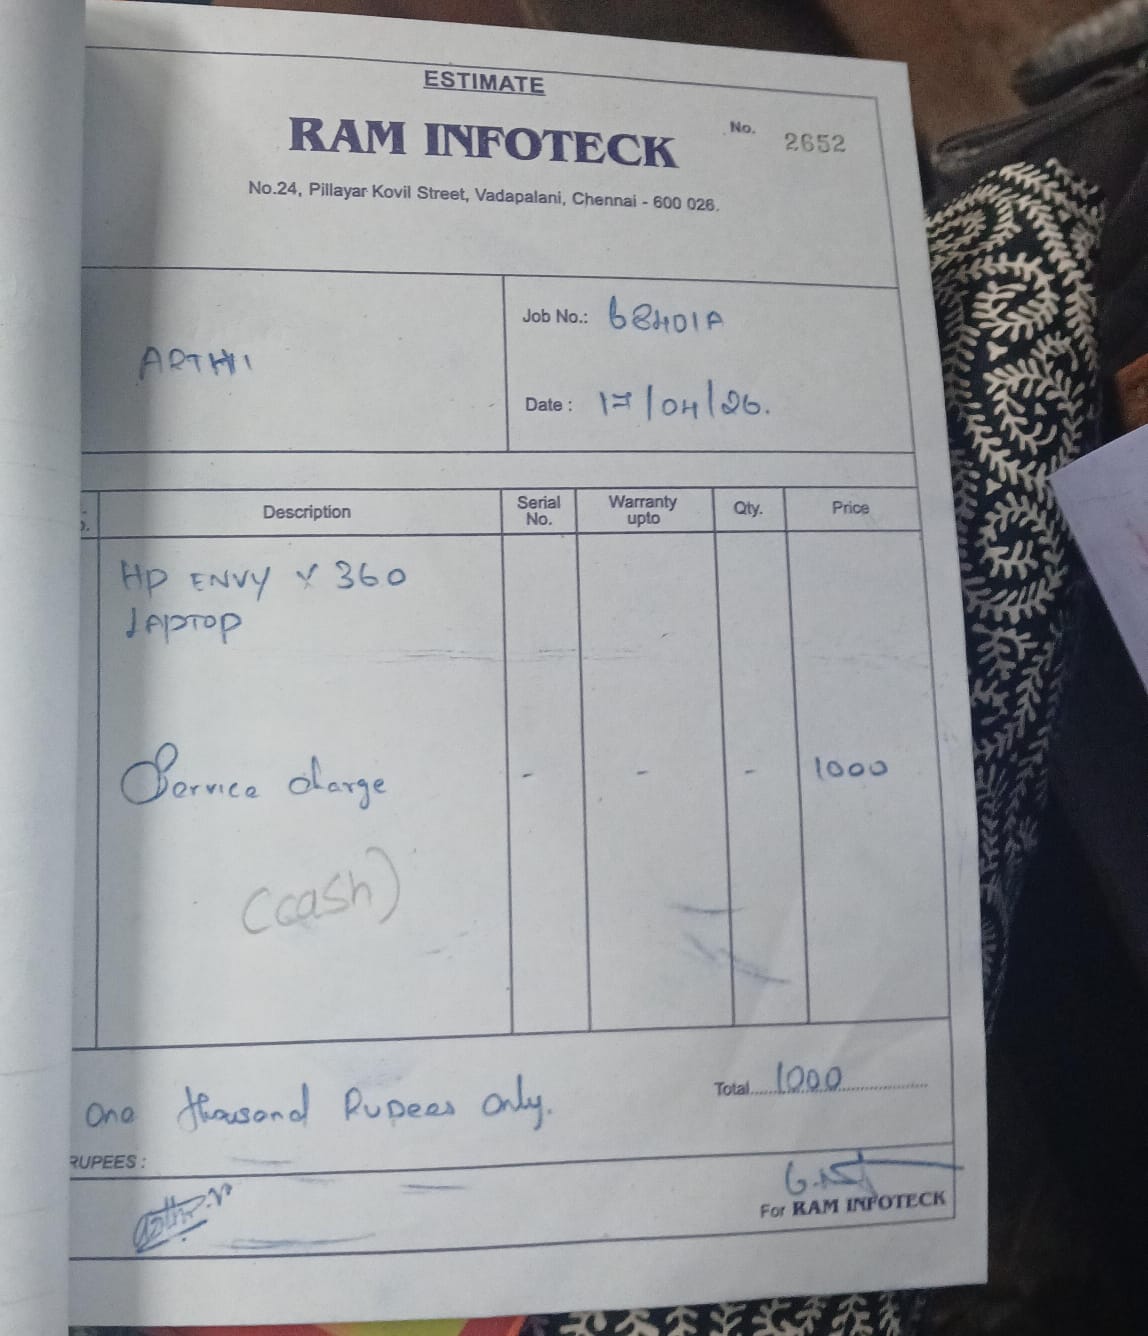 ESTIMATE
RAM INFOTECK
No. 2652
No.24, Pillayar Kovil Street, Vadapalani, Chennai - 600 026.
ARTHI
Job No.: 68401A
Date : 17/04/26.
Description Serial No. Warranty upto Qty. Price
HP ENVY x 360
LAPTOP
Service charge - - - 1000
(cash)
One thousand Rupees only.
Total 1000
RUPEES :
For RAM INFOTECK